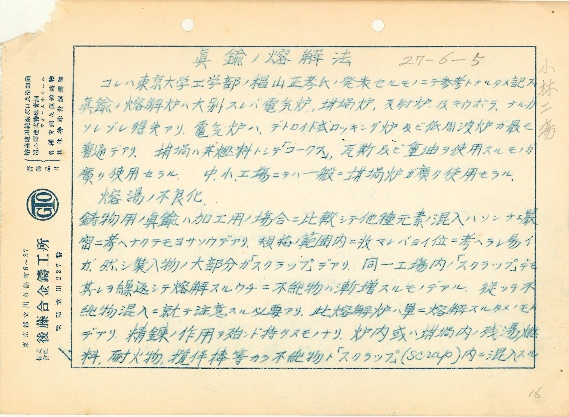 真鍮ノ熔解法
27-6-5
小林工場
コレハ東京大学工学部ノ椙山正孝氏ノ発表セルモノニテ参考トナルタメ記ス
真鍮ノ熔解炉ハ大別スレバ電気炉、坩堝炉、反射炉、及キウポラ、ナルガ
ソレゾレ得失アリ、電気炉ハ、デトロイト式ロッキング炉及ビ低周波炉ガ最モ
普通デアリ、坩堝ハ其燃料トシテ「コークス」、瓦斯及ビ重油ヲ使用スルモノガ
廣ク使用セラル 中小工場ニテハ一般ニ坩堝炉ガ廣ク使用セラル.
熔湯ノ不良化.
鋳物用ノ真鍮ハ加工用ノ場合ニ比較シテ他種元素ノ混入ハソンナニ厳
密ニ考ヘナクテモヨサソウデアリ、規格ノ範囲内ニ收マレバヨイ位ニ考ヘラレ易イ
ガ、然シ装入物ノ大部分ガ「スクラップ」デアリ、同一工場内ノ「スクラップ」デモ
其レヲ繰返シテ熔解スルウチニ不純物ハ漸増スルモノデアル. 從ッテ不
純物混入ニ就テ注意スル必要アリ、此熔解炉ハ單ニ熔解スルタメノモノ
デアリ、精錬ノ作用ヲ殆ンド持タズモノナリ、炉内或ハ坩堝内ノ残湯燃
料、耐火物、撹伴棒等カラ不純物ト「スクラップ」(scrap)内ニ混入スル
株式会社 後藤合金鑄工所
東京都立川市錦町6-27
電話立川237番
16